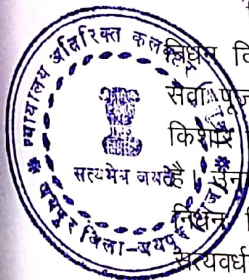 न्यायालय अतिरिक्त कलक्टर
सत्यमेव जयते
जयपुर जिला-जयपुर
निधन
सेवा पूज
किशोर
है।
निधन
सत्यवर्ध